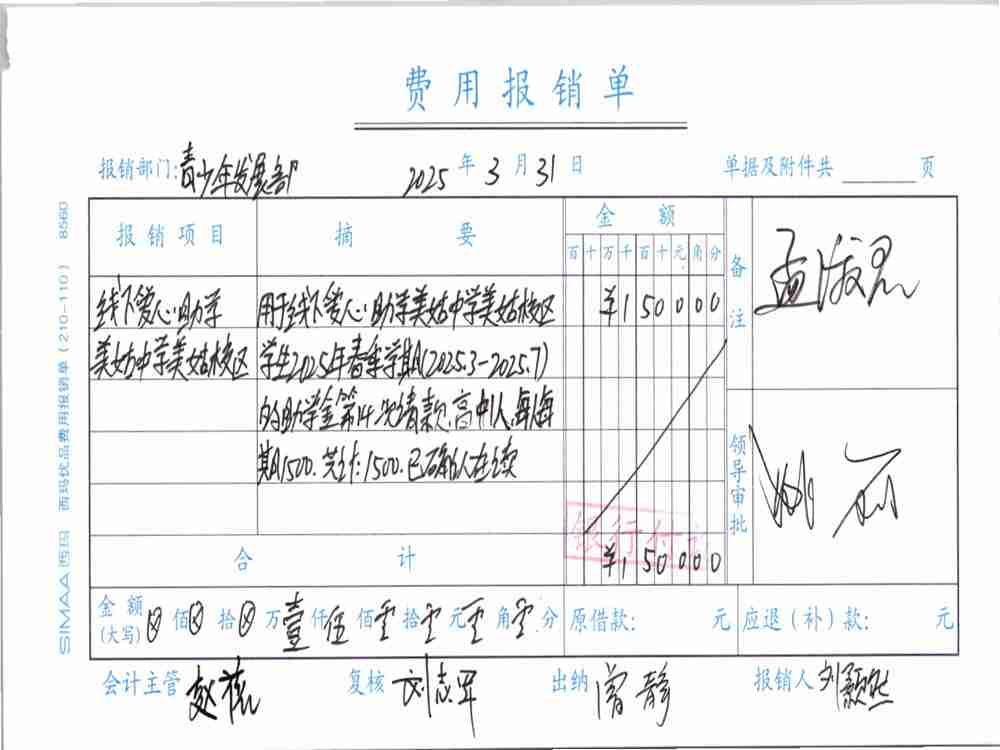 费用报销单
报销部门:青少年发展部 2025年3月31日 单据及附件共 页
报销项目 摘要 金额 备注
百十万千百十元角分
线下爱心助学 用于线下爱心助学美姑中学美姑校区 ¥150000
美姑中学美姑校区 学生2025年春季学期(2025.3-2025.7)
的助学金第14次请款,高中1人,每人每
期1500.共计:1500.已确认在读
领导审批
银行付
合计 ¥150000
金额(大写) 佰 拾 万壹仟伍佰零拾零元零角零分 原借款: 元 应退(补)款: 元
会计主管 复核 刘志军 出纳 曾静 报销人 刘颖然
SIMAA 西玛 西玛优品费用报销单(210-110) 8560